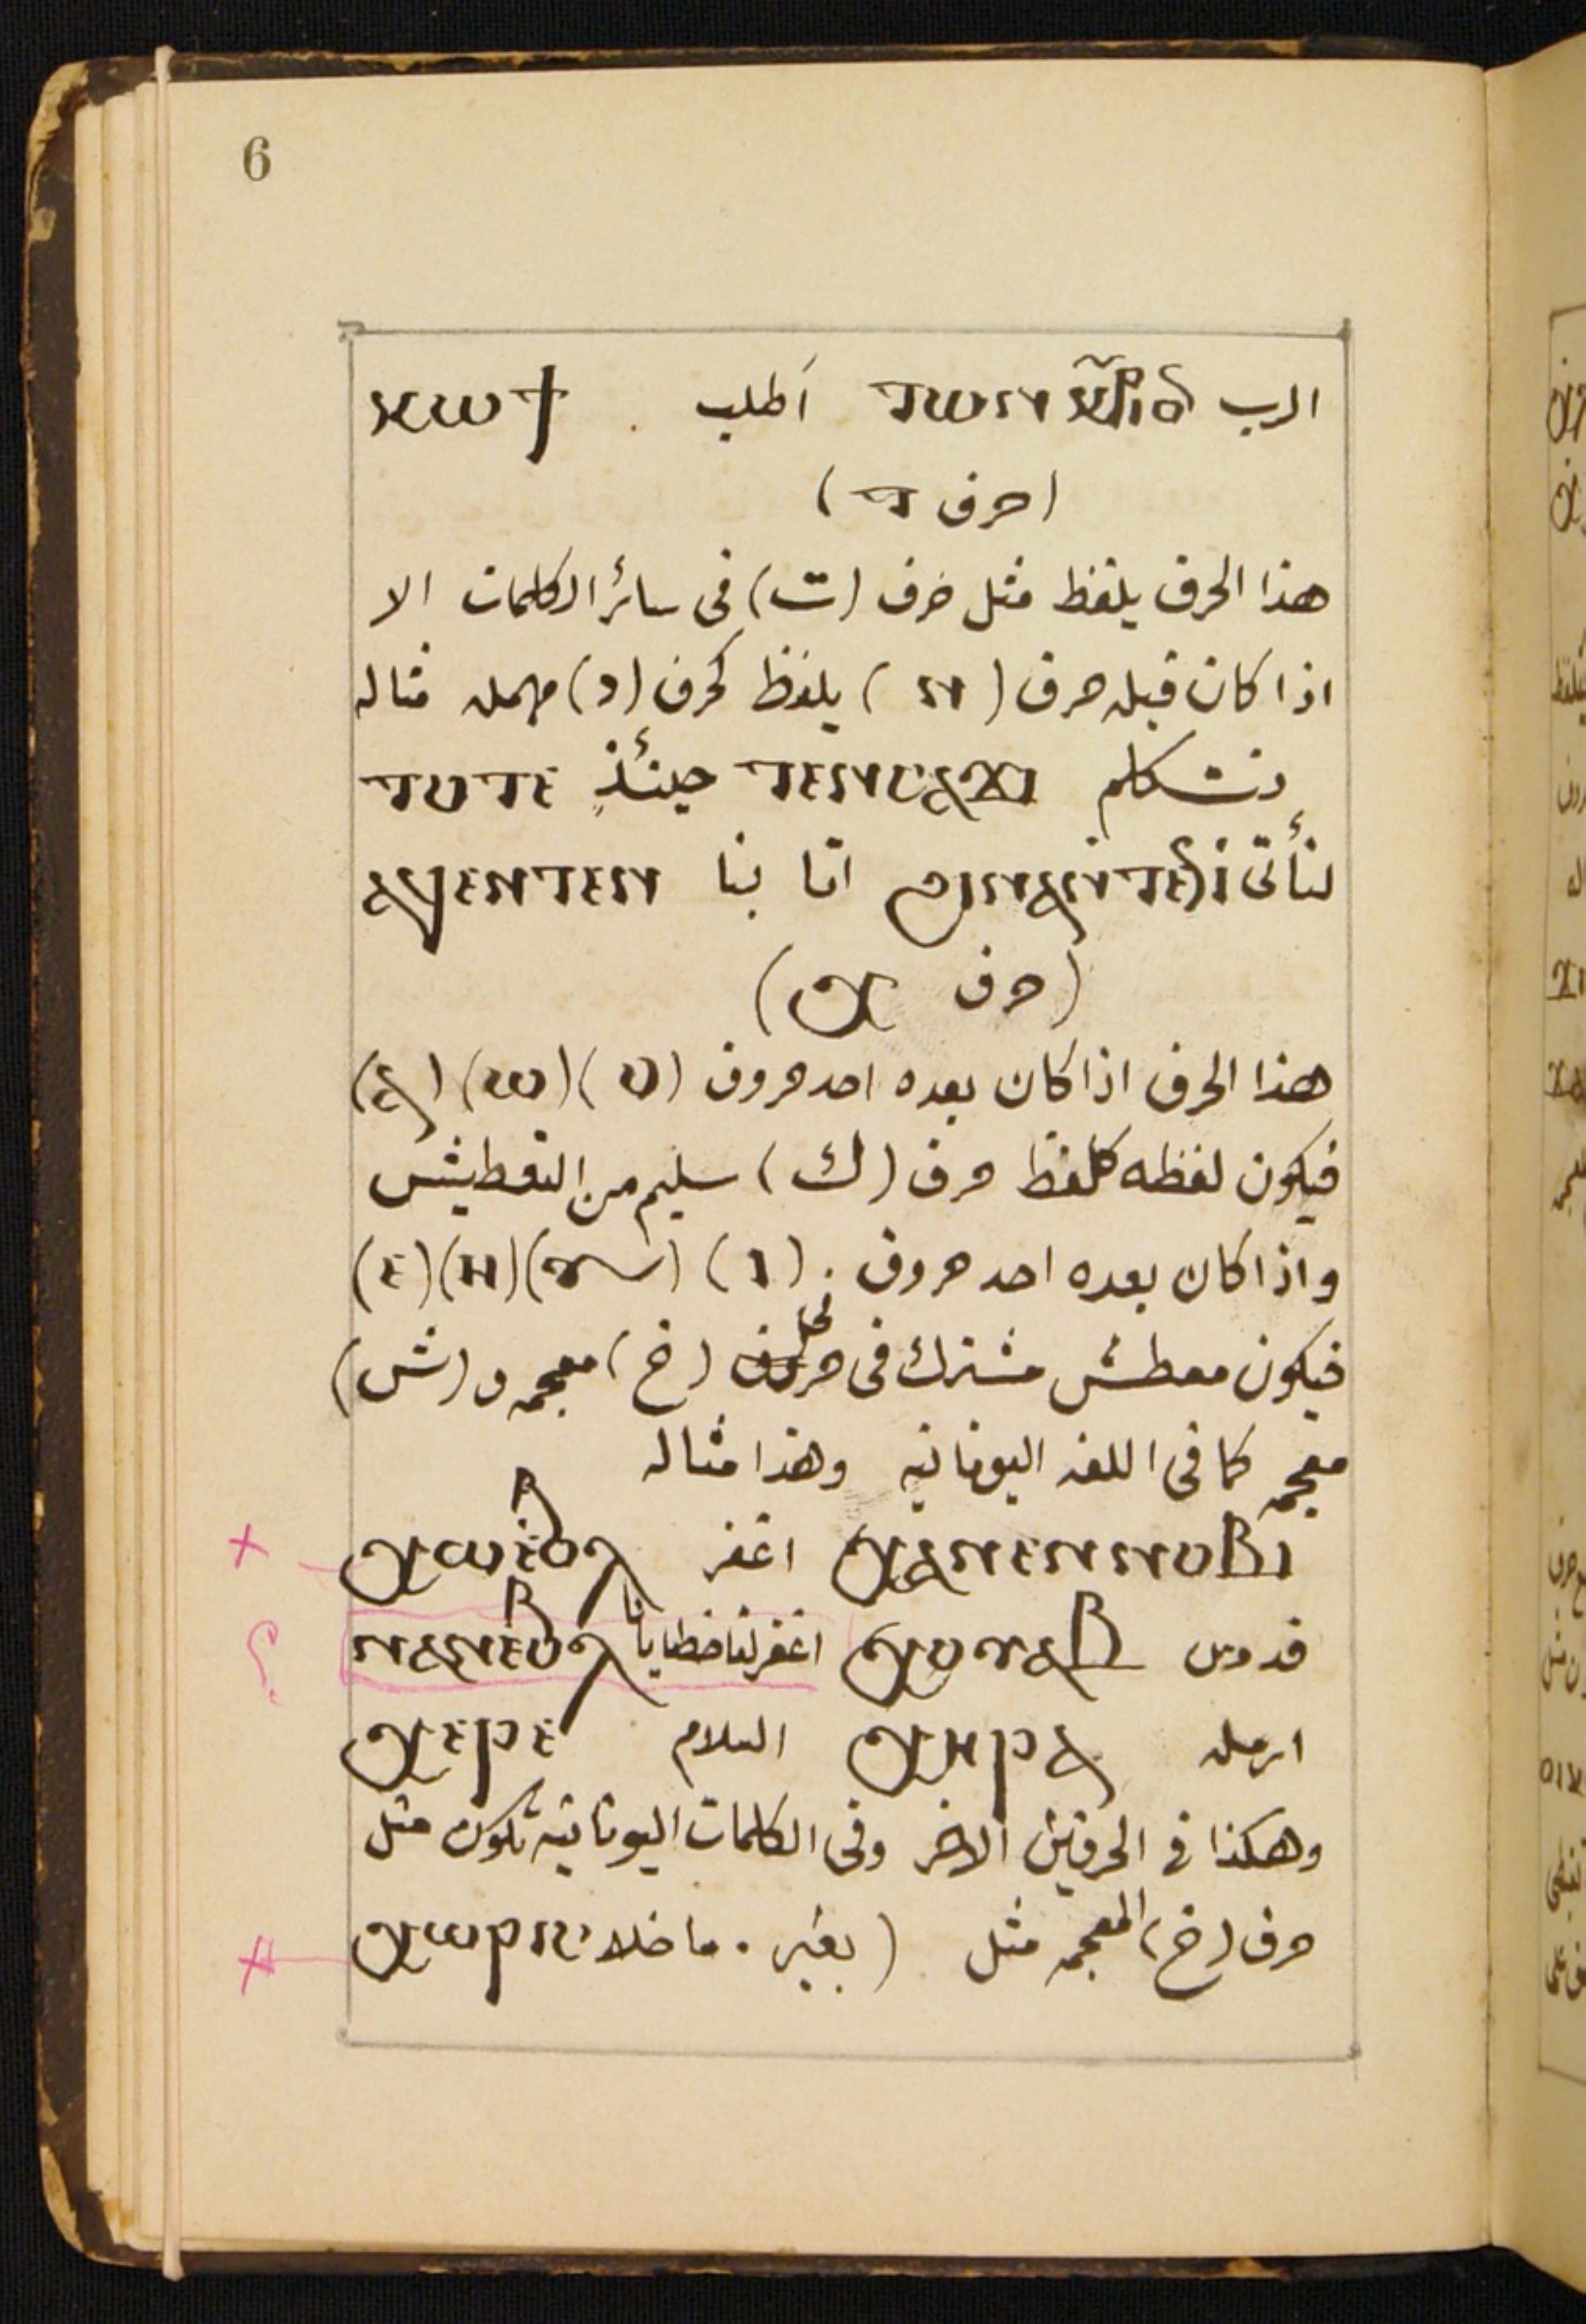 6
الرب ⲧⲱⲛ اطلب ⲕⲱϯ
(حرف ⲧ)
هذا الحرف يلفظ مثل حرف (ت) فى سائر الكلمات الا
اذا كان قبله حرف (ⲛ) يلفظ كحرف (د) مهمله مثاله
نتكلم ⲧⲉⲛⲥⲁϫⲓ حينئذٍ ⲧⲟⲧⲉ
لنأتى اتا بنا ⲁϥⲉⲛⲧⲉⲛ
(حرف ⲭ)
هذا الحرف اذا كان بعده احد حروف (ⲟ) (ⲱ) (ⲁ)
فيكون لفظه كلفظ حرف (ك) سليم من التعطيش
واذا كان بعده احد حروف . (ⲓ) (ⲩ) (ⲏ) (ⲉ)
فيكون معطش مشترك فى (خ) معجمه و (ش)
معجمه كما فى اللغه اليونانيه وهذا مثاله
ⲭⲁⲛⲉⲛⲛⲟⲃⲓ اغفر ⲭⲱ ⲉⲃⲟⲗ
قدوس ⲭⲟⲩⲁⲃ اغفر لنا خطايانا ⲛⲁⲛ ⲉⲃⲟⲗ
ارمله ⲭⲏⲣⲁ السلام ⲭⲉⲣⲉ
وهكذا فى الحرفين الاخر وفى الكلمات اليونانيه تكون مثل
حرف (خ) المعجمه مثل (بغير . ما خلا ⲭⲱⲣⲓⲥ